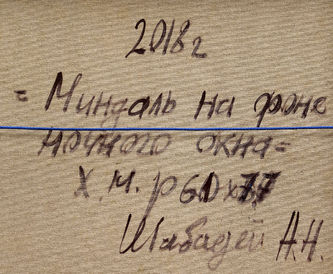 2018г
= Миндаль на фоне
ночного окна =
Х.м. р 60х77
Шабадей А.Н.